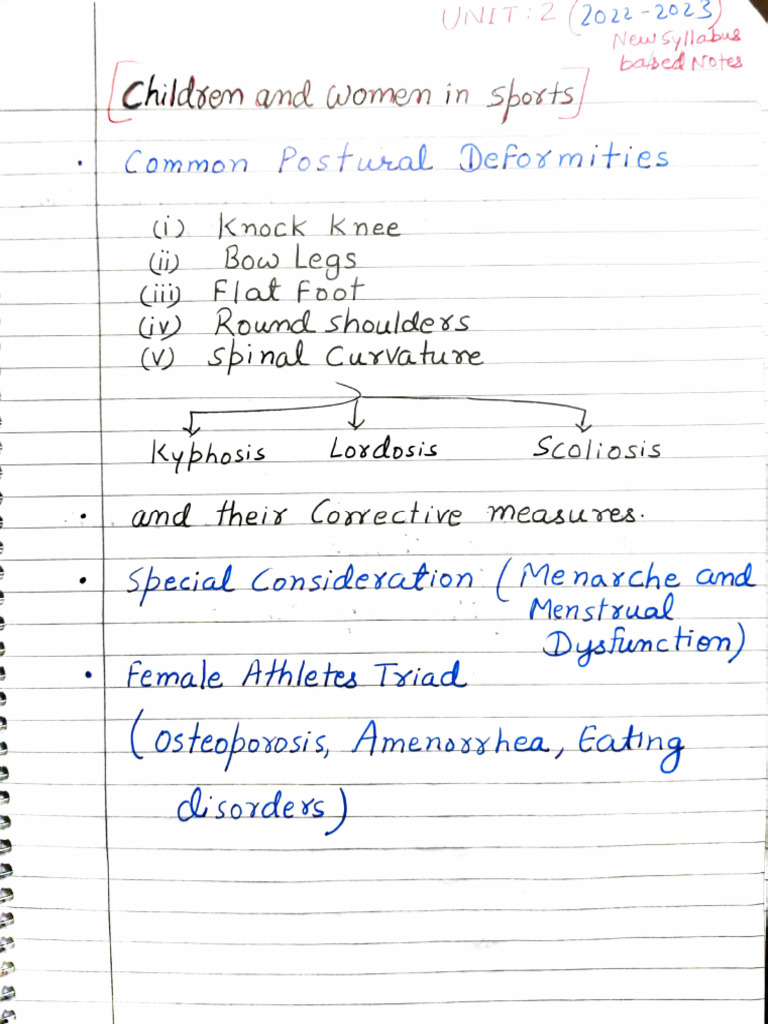 UNIT: 2 (2022-2023)
New syllabus
based Notes
[Children and women in sports]
• Common Postural Deformities
(i) Knock Knee
(ii) Bow Legs
(iii) Flat Foot
(iv) Round shoulders
(v) Spinal Curvature
Kyphosis Lordosis Scoliosis
• and their Corrective measures.
• Special Consideration (Menarche and
Menstrual
Dysfunction)
• Female Athletes Triad
(Osteoporosis, Amenorrhea, Eating
disorders)